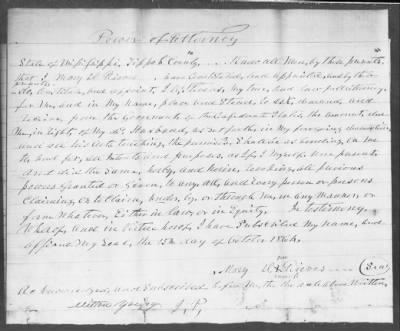 Power of Attorney
State of Mississippi, Tippah County. Know all Men, by these presents
that I Mary E have Constituted, and appointed, and by these
do Constitute, and appoint, my true, and lawful attorney
for Me, and in My Name, place and Stead, to ask, demand, and
receive, from the Government of the Confederate States the amount due
Me, in right of My Husband, as set forth, in My foregoing
and all his acts touching, the premises, Shall be as binding, on me
to all intents and purposes, as if I Myself, were present,
and did the Same, hereby, and herein, revoking, all previous
powers granted or Given, to any, all, and every person or persons
Claiming, or to Claim, under, by, or through Me, in any Manner, or
form Whatever, Either in law, or in Equity. In testimony
Whereof, and in Virtue hereof, I have Subscribed My Name, and
affixed My Seal, the 15th day of October 1864.
Mary (Seal)
Acknowledged, and Subscribed before me, the date above Written,
J. P.